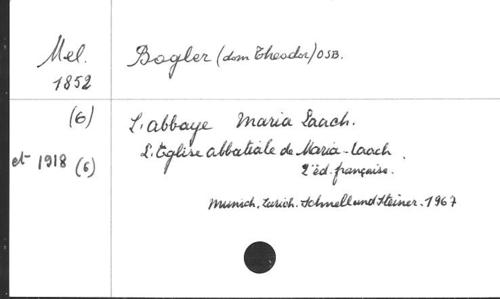 Mel.
1852
(6)
et 1918 (6)
Bogler (dom Theodor) OSB.
L'abbaye Maria Laach.
L'Eglise abbatiale de Maria-Laach.
2'éd. française.
Munich. Zurich. Schnell und Steiner. 1967